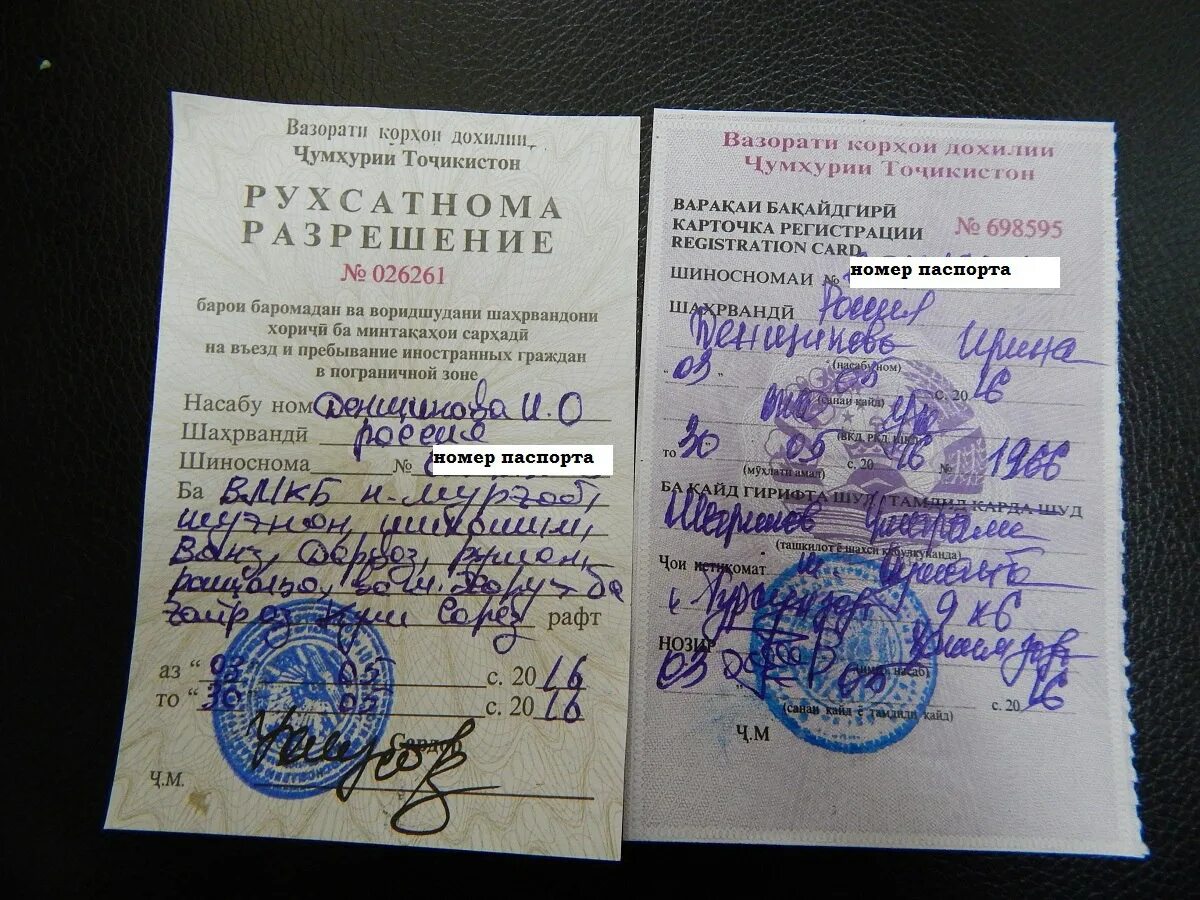 Вазорати корҳои дохилии
Ҷумҳурии Тоҷикистон
РУХСАТНОМА
РАЗРЕШЕНИЕ
№ 026261
барои баромадан ва воридшудани шаҳрвандони
хориҷӣ ба минтақаҳои сарҳадӣ
на въезд и пребывание иностранных граждан
в пограничной зоне
Насабу ном Денщикова И.О
Шаҳрвандӣ россия
Шиноснома № номер паспорта
Ба ВМКБ н. Мурғоб,
шуғнон, ишкошим,
Ванҷ, Дарвоз, рушан,
Хоруғ ба
ғайр аз Кули Сарез рафт
аз "03" 05 с. 2016
то "30 05 с. 2016
Сардор
Ҷ.М.
Вазорати корҳои дохилии
Ҷумҳурии Тоҷикистон
ВАРАҚАИ БАҚАЙДГИРӢ
КАРТОЧКА РЕГИСТРАЦИИ
REGISTRATION CARD
№ 698595
ШИНОСНОМАИ № номер паспорта
ШАҲРВАНДӢ Россия
Денщикова Ирина
(насабу ном)
"03" 05 с. 2016
(санаи қайд)
(ВКД, РКД, ШКД)
то 30 05 с. 2016 № 1966
(мӯҳлати амал)
БА ҚАЙД ГИРИФТА ШУД / ТАМДИД КАРДА ШУД
(ташкилот ё шахси қабулкунанда)
Ҷои истиқомат
9 к 6
НОЗИР
03 05 с. 2016
(санаи қайд ё тамдиди қайд)
Ҷ.М